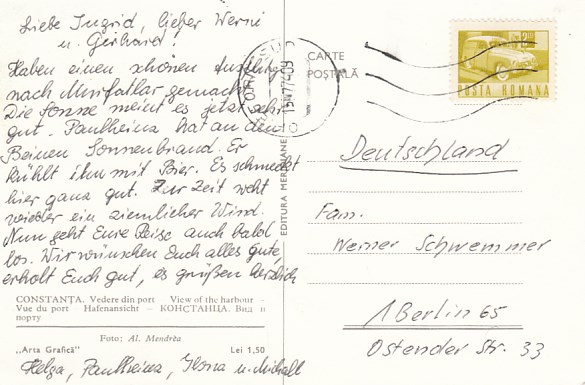 Liebe Ingrid, lieber Werni
u. Gerhard!
Haben einen schönen Ausflug
nach Murfatlar gemacht.
Die Sonne meint es jetzt sehr
gut. Paulheinz hat an den
Beinen Sonnenbrand. Er
kühlt ihn mit Bier. Es schmeckt
hier ganz gut. Zur Zeit weht
wieder ein ziemlicher Wind.
Nun geht Eure Reise auch bald
los. Wir wünschen Euch alles gute,
erholt Euch gut, es grüßen herzlich
CONSTANȚA. Vedere din port - View of the harbour -
Vue du port - Hafenansicht - КОНСТАНЦА. Вид в
порту
Foto: Al. Mendrea
„Arta Grafică" Lei 1,50
Helga, Paulheinz, Ilona u. Michael
EDITURA MERIDIANE
CARTE
POȘTALĂ
POSTA ROMANA
Deutschland
Fam.
Werner Schwemmer
1 Berlin 65
Ostender Str. 33